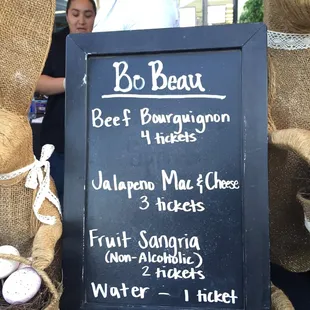 Bo Beau
Beef Bourguignon
4 tickets
Jalapeno Mac & Cheese
3 tickets
Fruit Sangria
(Non-Alcoholic)
2 tickets
Water - 1 ticket